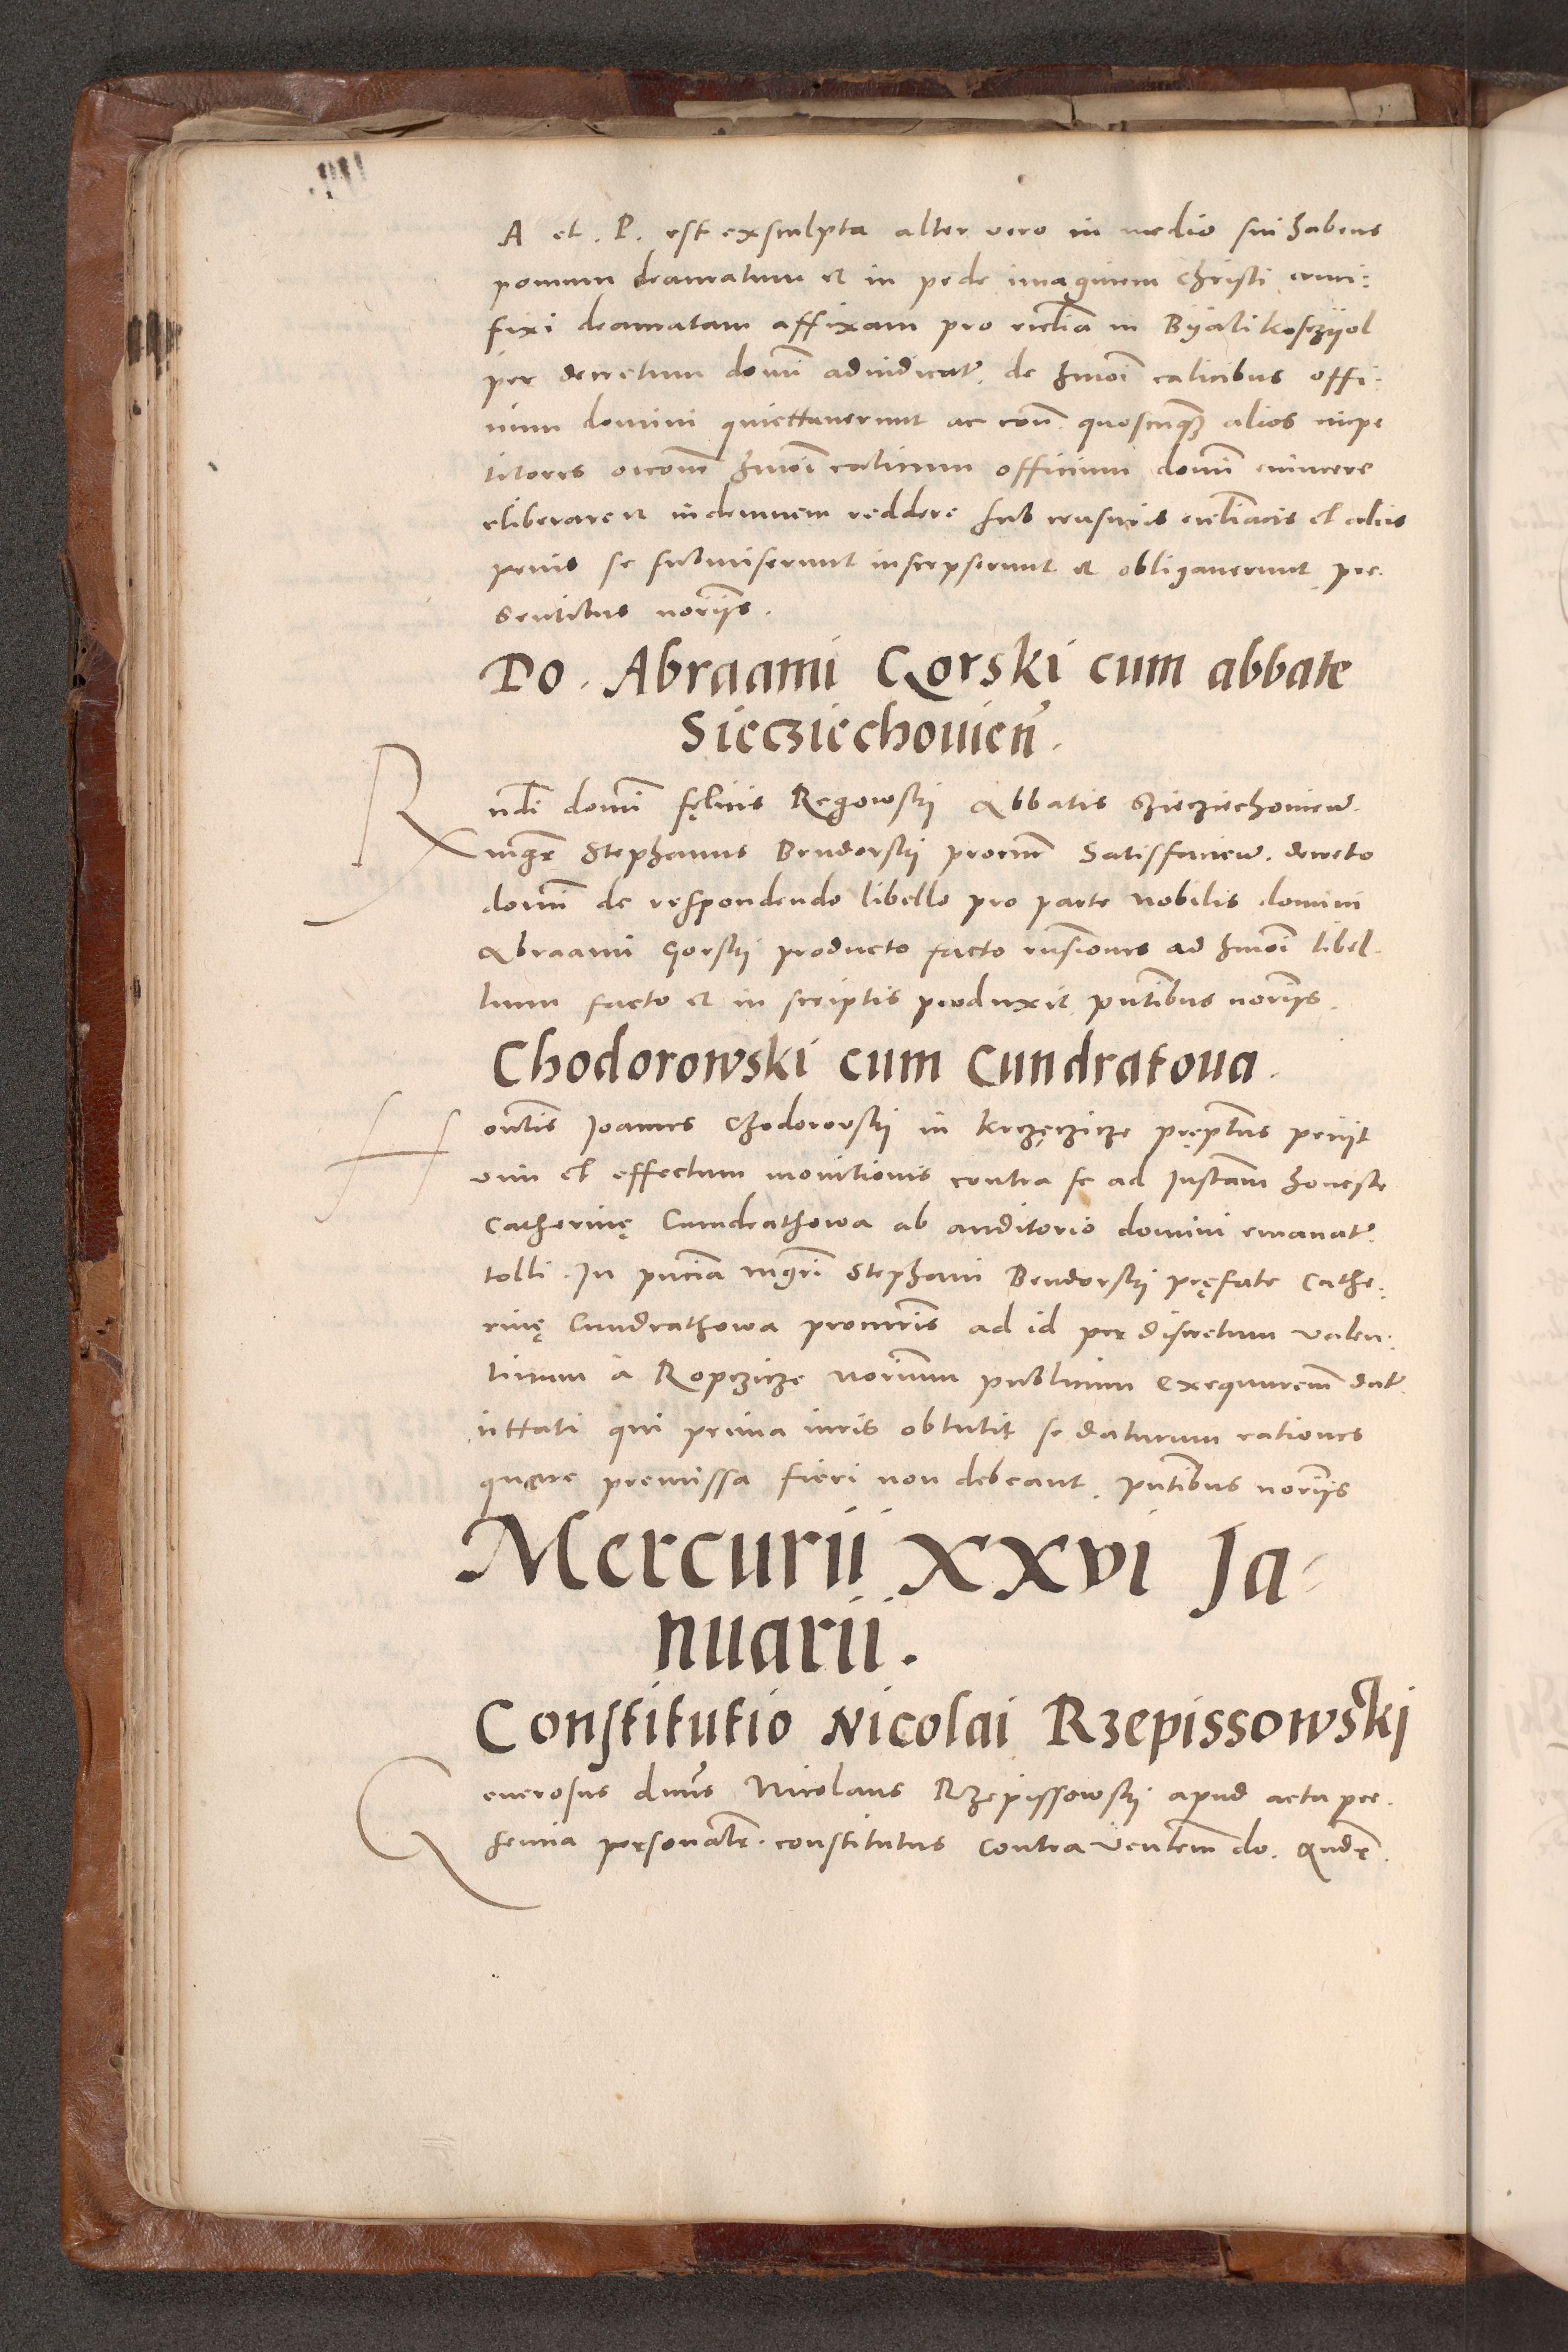 A et . P. est exsculpta alter vero in medio sui habens
pomum deauratum et in pede imaginem Christi cruci:
fixi deauratam affixam pro ecclīa in Byali koscziol
per decretum domī adiudicat̄. de hmōi calicibus offi:
cium domini quiettauerunt ac con̄ quoscūq3 alios impe
titores occoēm hmōi calicum officium domī euincere
eliberare et indemnem reddere sub censuris eccliācis et aliis
penis se submiserunt inscripserunt et obligauerunt pre.
sentibus norijs.
Do. Abraami Gorski cum abbate
Siecziechouień.
Rndi domī felicis Regowskj Abbatis Szieczechouień.
mgr̄ Stephanus Bendorskj procur̄ Satisfacień. decreto
domī de respondendo libello pro parte nobilis domini
Abraami Gorskj producto facto respōnes ad hmōi libel.
lum facto et in scriptis produxit pntibus norijs.
Chodorowski cum Cundratoua.
Honētis Joannes Chodorowskj in krzęczicze pręptus petijt
vim et effectum monitionis contra se ad Instām honeste
Catherinę Cundrathowa ab auditorio domini emanat̄
tolli. In pnciā mgri Stephani Bendorskj pręfate Cathe:
rinę Cundrathowa procuris ad id per discretum Valen:
tinum a Ropczicze norium publicum Exequurem dat̄
cittati qui prima iuris obtulit se daturum rationes
quare premissa fieri non debeant. pntibus norijs
Mercurii XXVI Ja-
nuarii.
Constitutio Nicolai Rzepissowskj
Generosus dnūs Nicolaus Rzepissowskj apud acta pre.
sencia personalr̄. constitutus contra Venlem do. Andr̄.